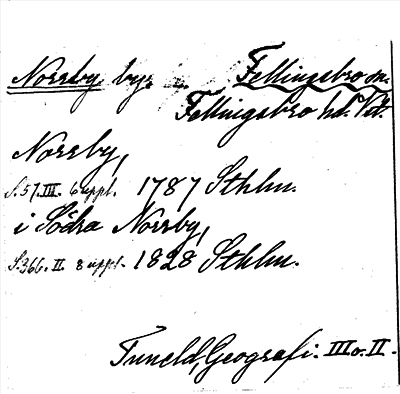 Norrby by. Fellingsbro sn.
Fellingsbro hd. Vstl.
Norrby,
S. 57. III. 6 uppl. 1787 Sthlm.
i Södra Norrby,
S. 366. II. 8 uppl. 1828 Sthlm.
Tuneld, Geografi. III o. II.